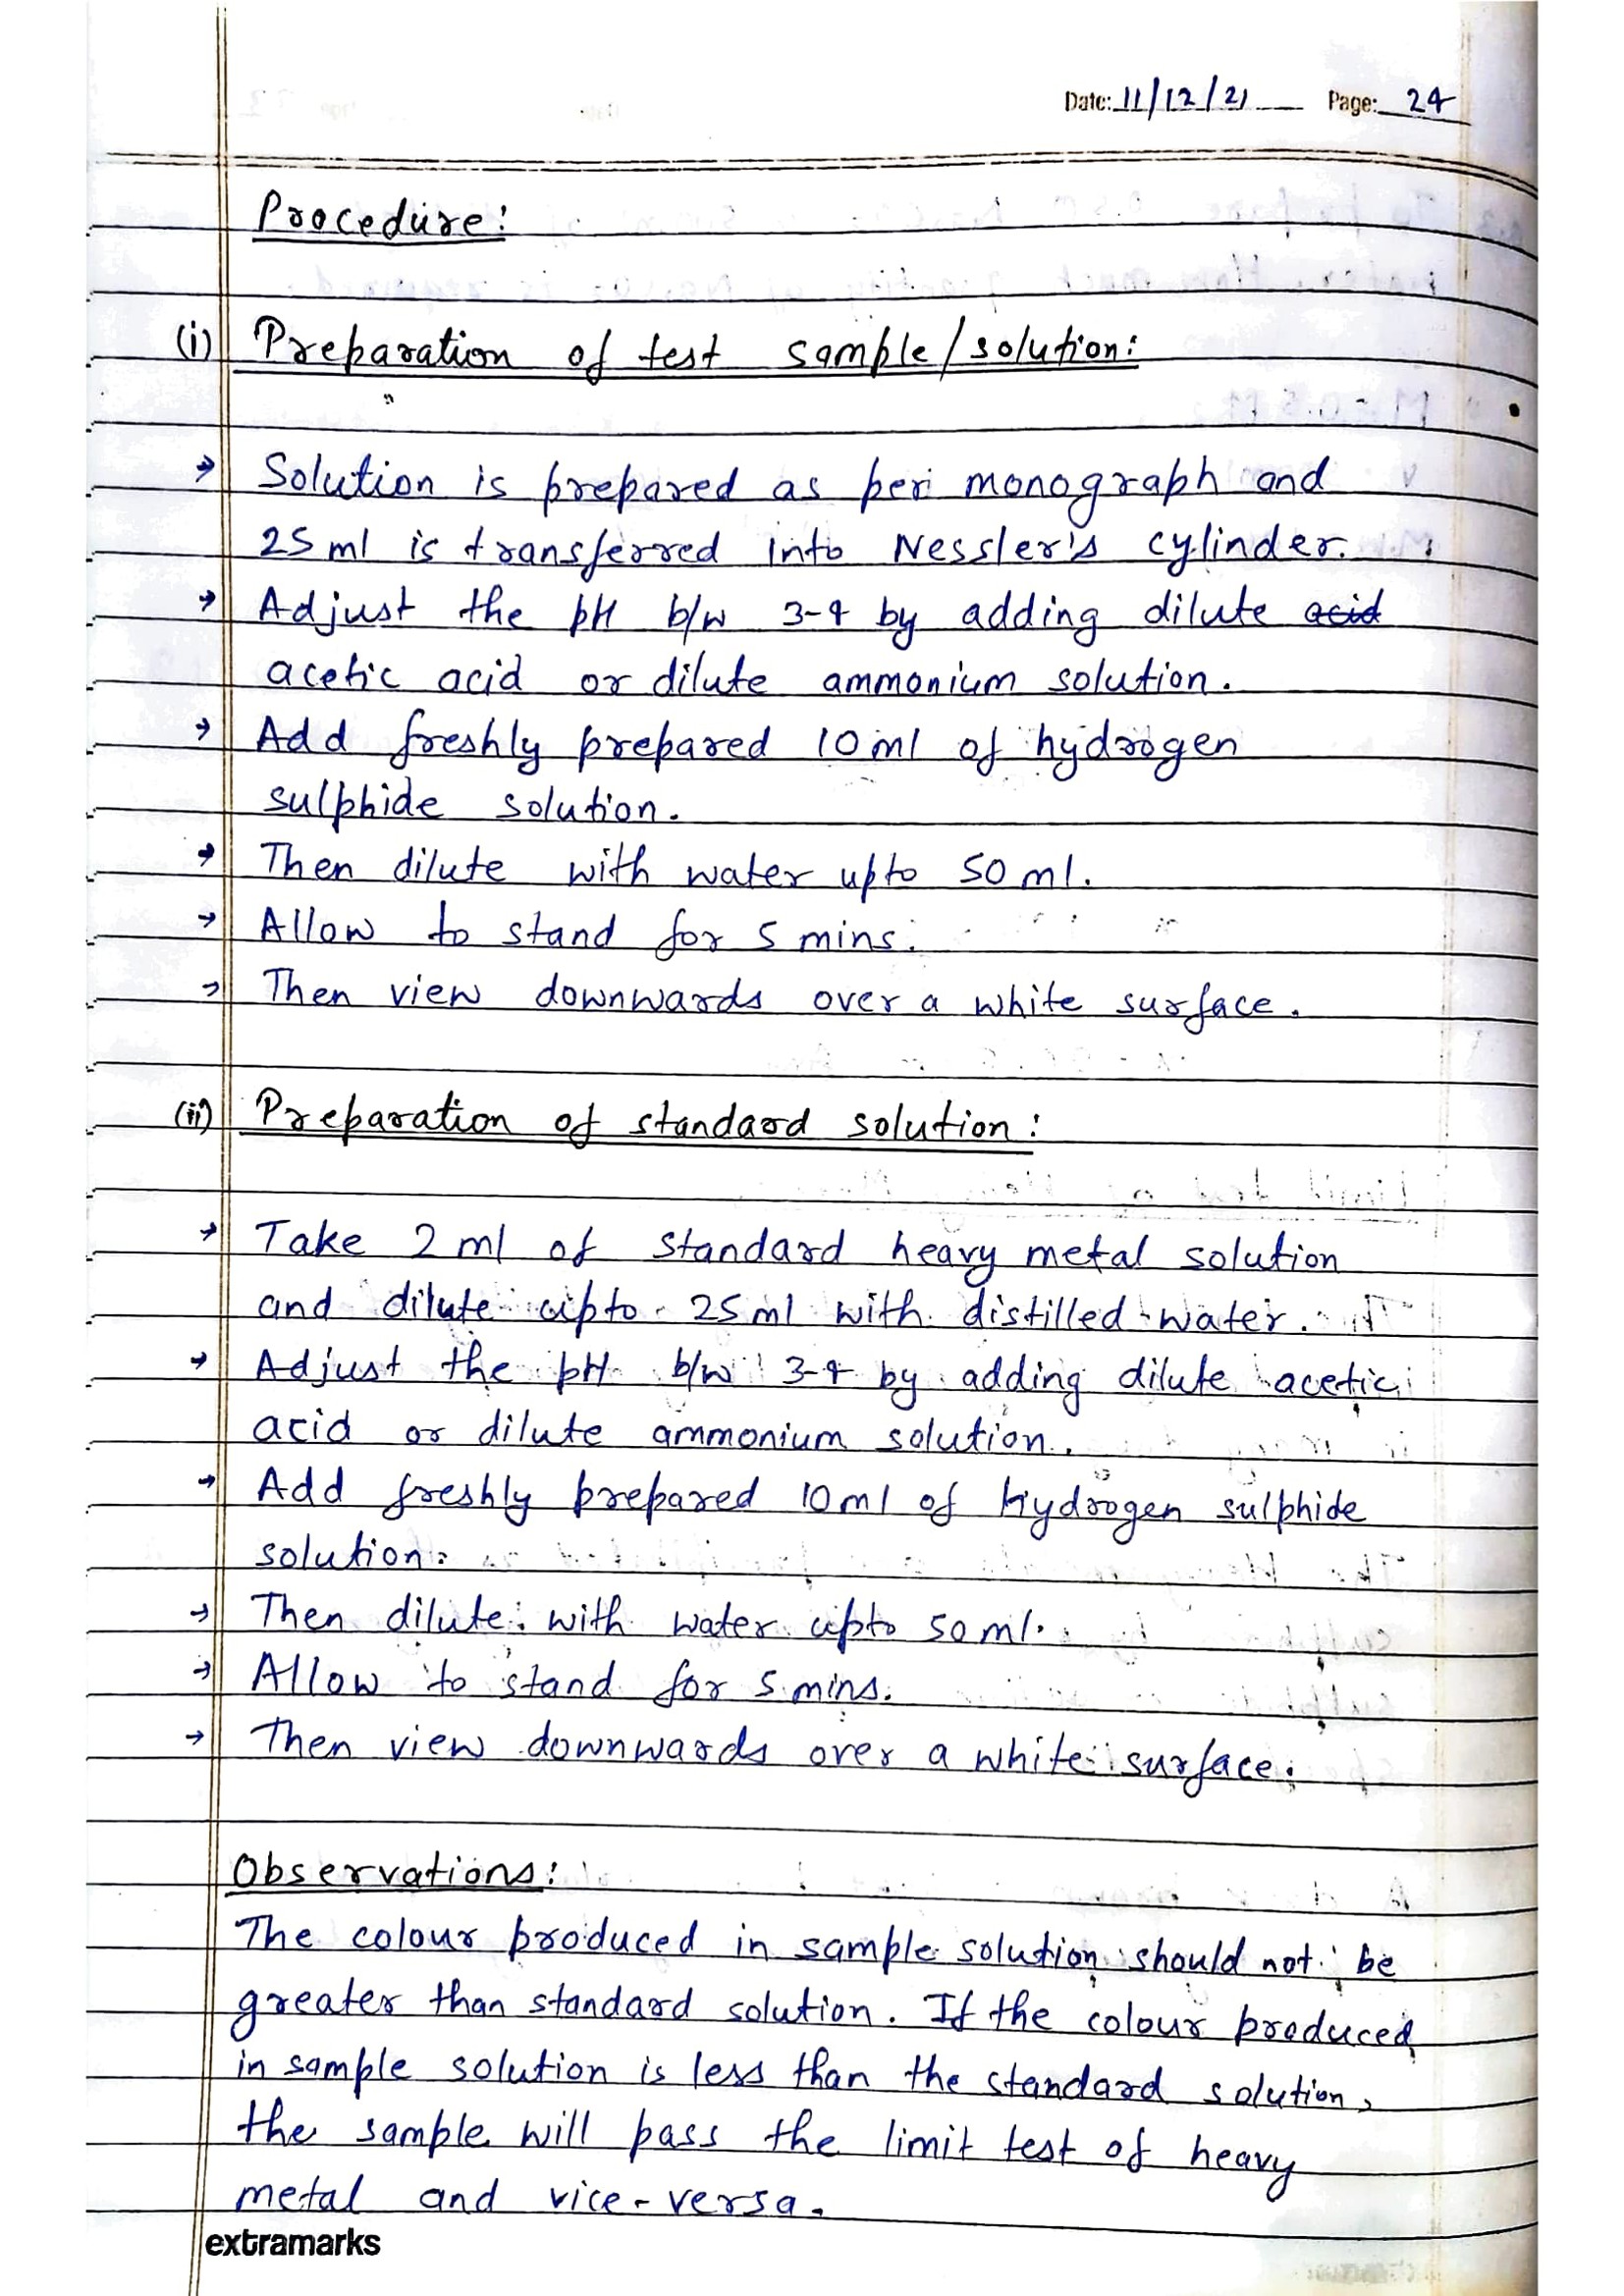 Date: 11/12/21 Page: 24
Procedure:
(i) Preparation of test sample/solution:
→ Solution is prepared as per monograph and
25 ml is transferred into Nessler's cylinder.
→ Adjust the pH b/w 3-4 by adding dilute acid
acetic acid or dilute ammonium solution.
→ Add freshly prepared 10 ml of hydrogen
sulphide solution.
→ Then dilute with water upto 50 ml.
→ Allow to stand for 5 mins.
→ Then view downwards over a white surface.
(ii) Preparation of standard solution:
→ Take 2 ml of standard heavy metal solution
and dilute upto 25 ml with distilled water.
→ Adjust the pH b/w 3-4 by adding dilute acetic
acid or dilute ammonium solution.
→ Add freshly prepared 10 ml of hydrogen sulphide
solution.
→ Then dilute with water upto 50 ml.
→ Allow to stand for 5 mins.
→ Then view downwards over a white surface.
Observations:
The colour produced in sample solution should not be
greater than standard solution. If the colour produced
in sample solution is less than the standard solution,
the sample will pass the limit test of heavy
metal and vice-versa.
extramarks